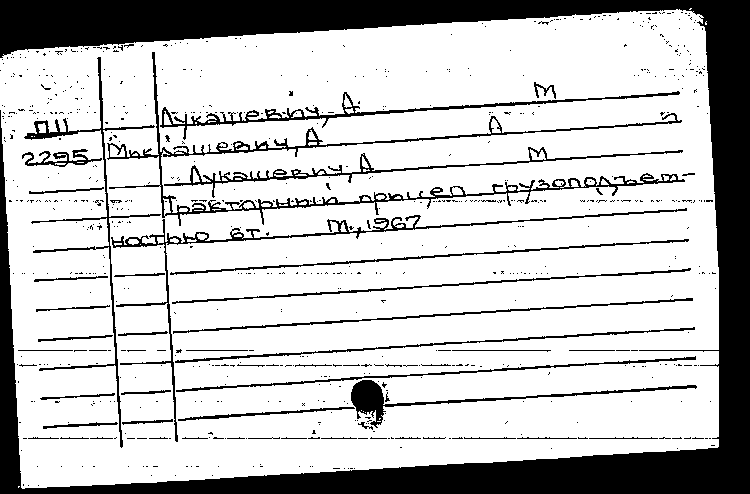 П11 Лукашевич, А М
2295 Миклашевич, А А П
Лукашевич, А М
Тракторный прицеп грузоподъем-
ностью 6т. М., 1967